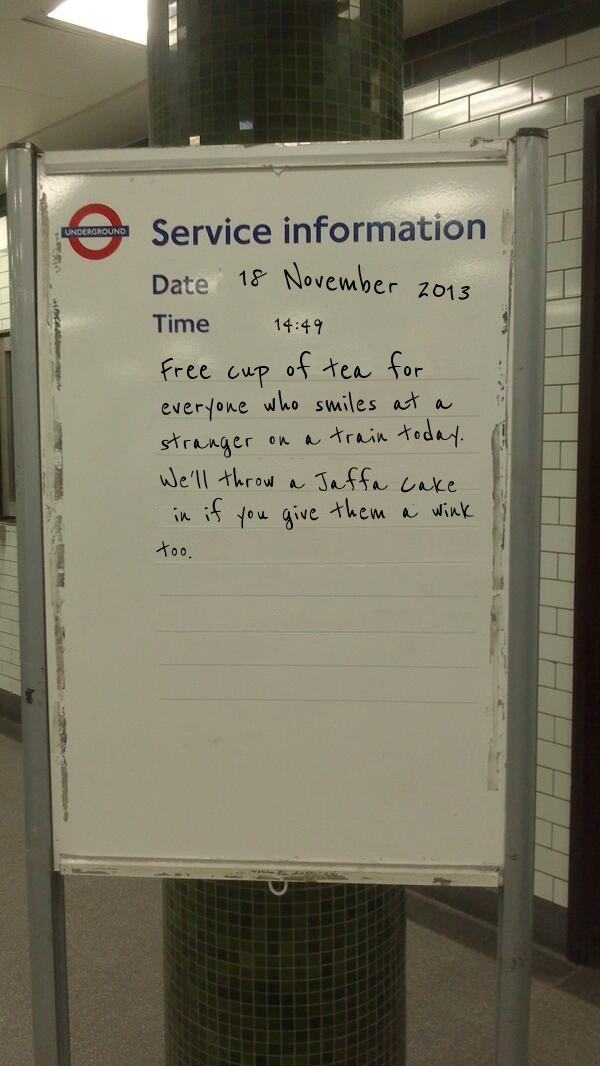 UNDERGROUND
Service information
Date 18 November 2013
Time 14:49
Free cup of tea for
everyone who smiles at a
stranger on a train today.
We'll throw a Jaffa Cake
in if you give them a wink
too.